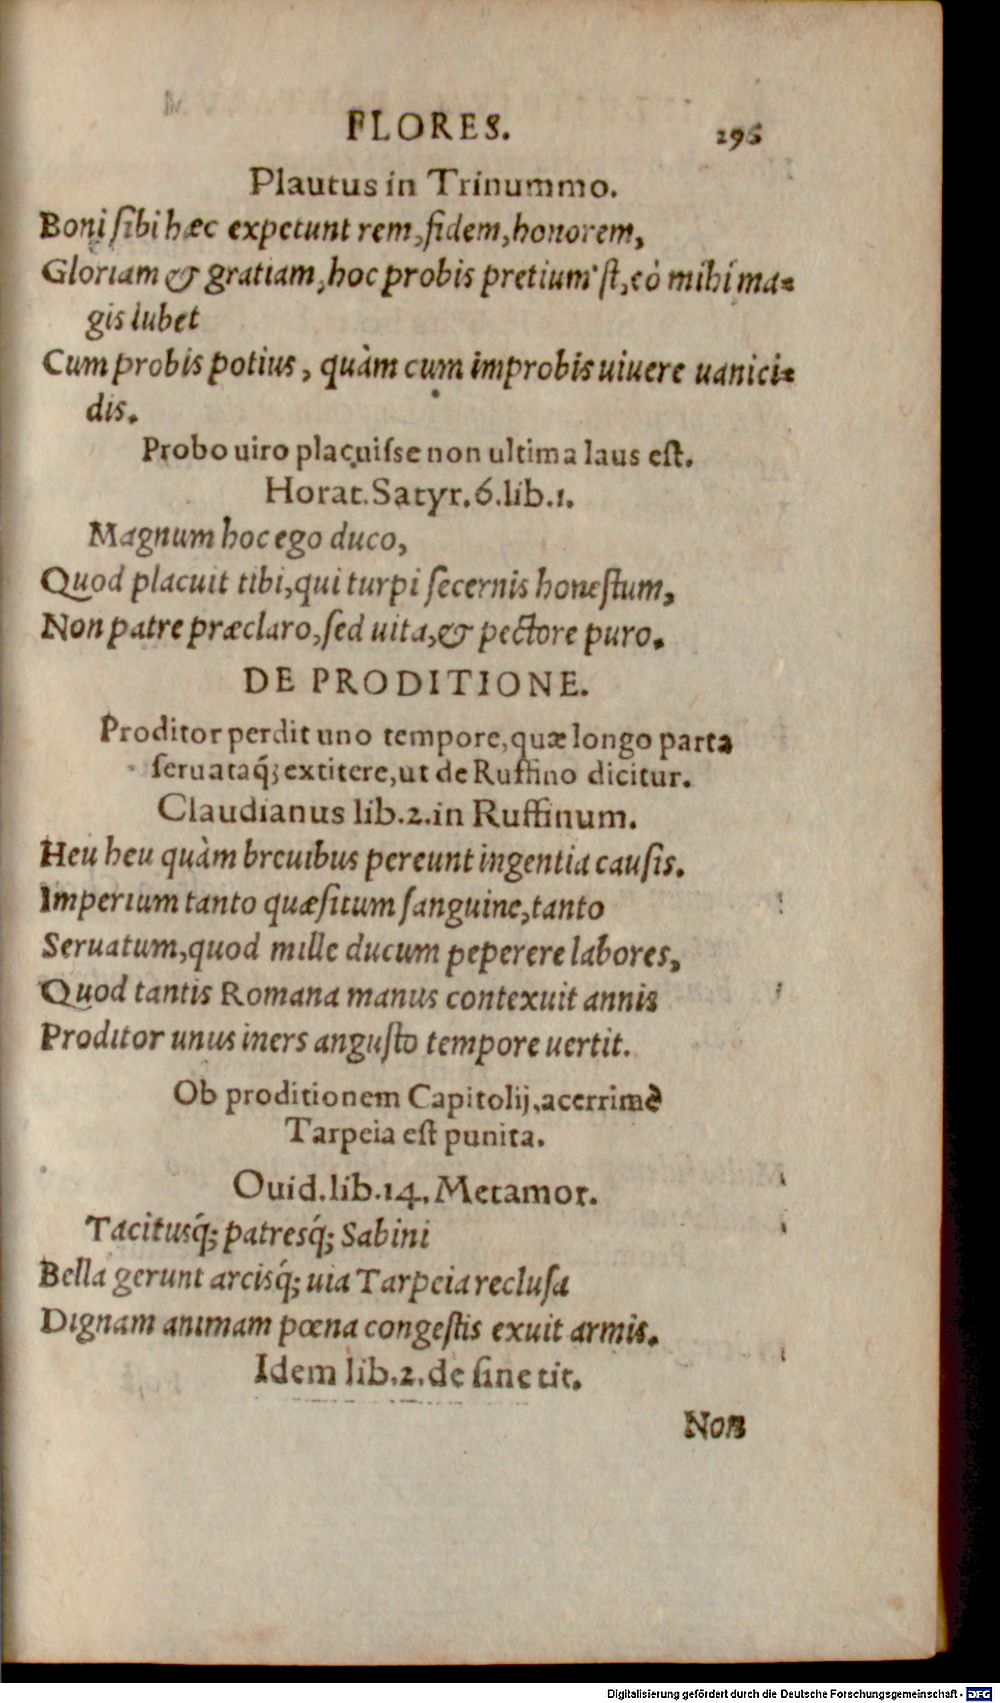 FLORES. 296
Plautus in Trinummo.
Boni ſibi hæc expetunt rem, fidem, honorem,
Gloriam & gratiam, hoc probis pretium'ſt, eò mihi ma-
gis lubet
Cum probis potius, quàm cum improbis uiuere uanici-
dis.
Probo uiro placuiſse non ultima laus eſt.
Horat. Satyr. 6. lib. 1.
Magnum hoc ego duco,
Quod placuit tibi, qui turpi ſecernis honeſtum,
Non patre præclaro, ſed uita, & pectore puro.
DE PRODITIONE.
Proditor perdit uno tempore, quæ longo parta
ſeruataq́; extitere, ut de Ruffino dicitur.
Claudianus lib. 2. in Ruffinum.
Heu heu quàm breuibus pereunt ingentia cauſis.
Imperium tanto quæſitum ſanguine, tanto
Seruatum, quod mille ducum peperere labores,
Quod tantis Romana manus contexuit annis
Proditor unus iners anguſto tempore uertit.
Ob proditionem Capitolij, acerrimè
Tarpeia eſt punita.
Ouid. lib. 14. Metamor.
Tacitusq́; patresq́; Sabini
Bella gerunt arcisq́; uia Tarpeia recluſa
Dignam animam pœna congeſtis exuit armis.
Idem lib. 2. de ſine tit.
Non
Digitalisierung gefördert durch die Deutsche Forschungsgemeinschaft - DFG